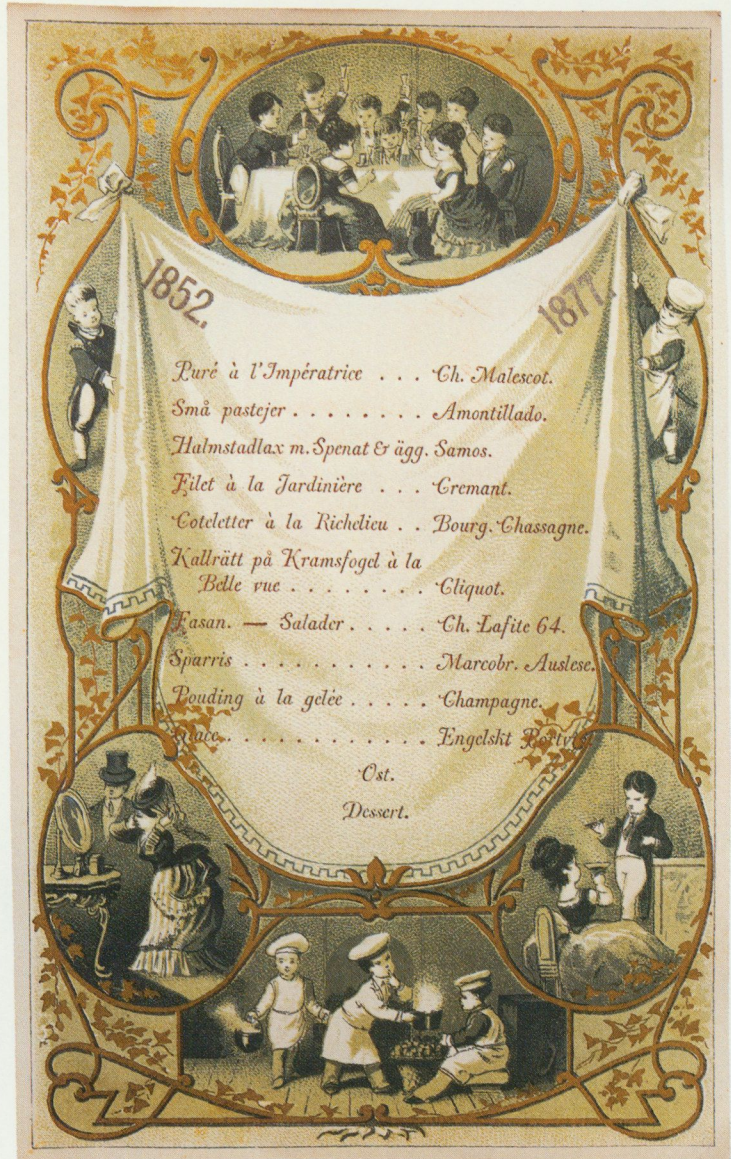 1852.
1877.
Puré à l'Impératrice . . . Ch. Malescot.
Små pastejer . . . . . . . . Amontillado.
Halmstadlax m. Spenat & ägg. Samos.
Filet à la Jardinière . . . Cremant.
Coteletter à la Richelieu . . Bourg. Chassagne.
Kallrätt på Kramsfogel à la
Belle vue . . . . . . . . Cliquot.
Fasan. — Salader . . . . . Ch. Lafite 64.
Sparris . . . . . . . . . . . Marcobr. Auslese.
Pouding à la gelée . . . . . Champagne.
Glace . . . . . . . . . . . . Engelskt Portvin
Ost.
Dessert.